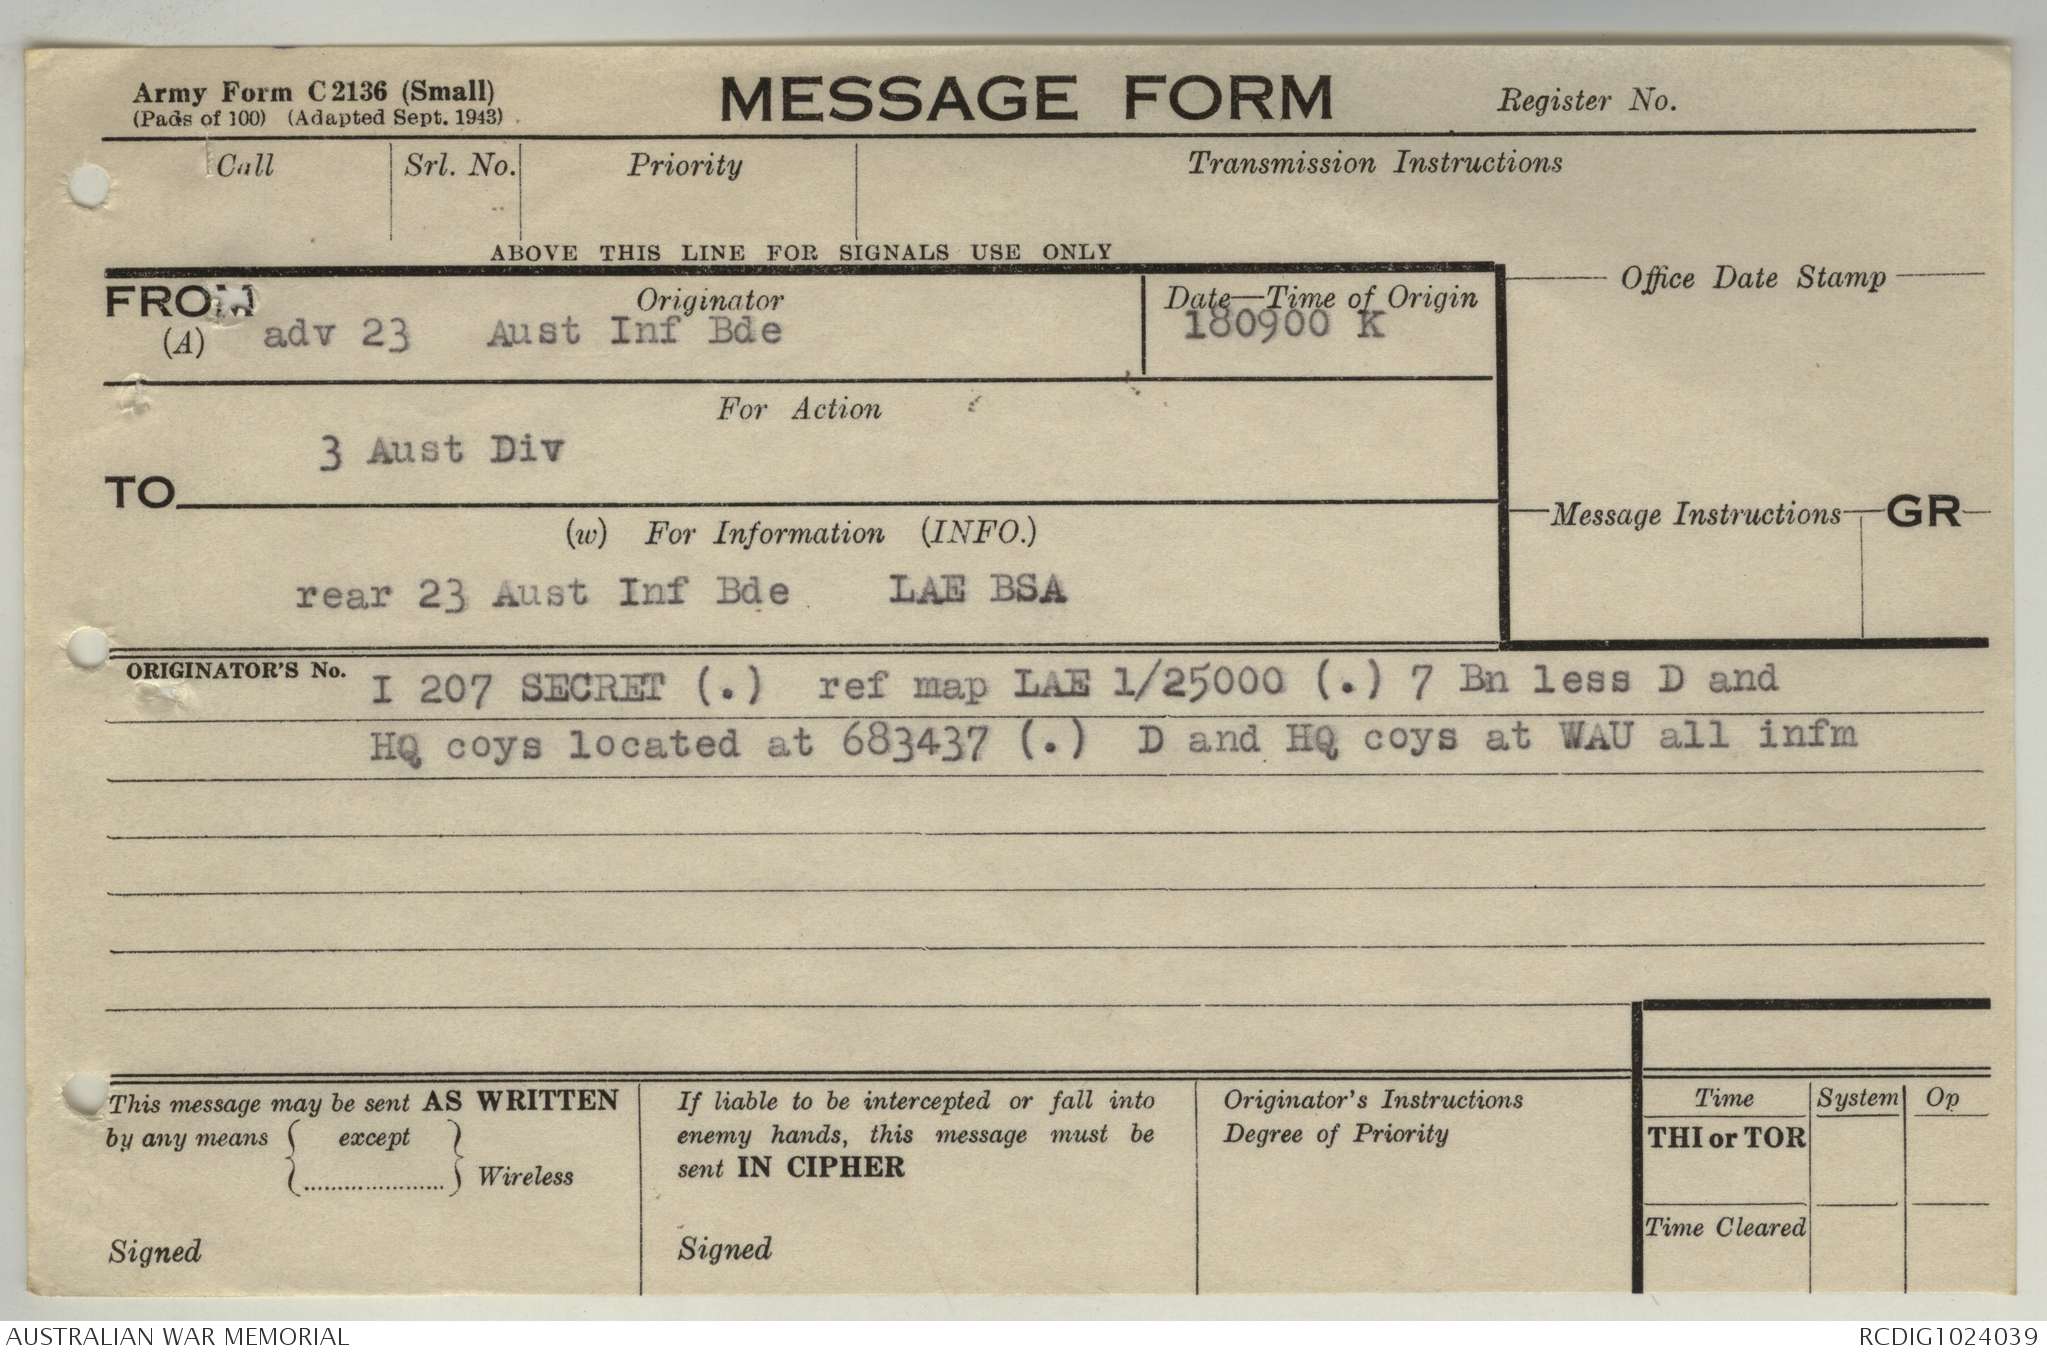 Army Form C2136 (Small)
(Pads of 100) (Adapted Sept. 1943)
MESSAGE FORM
Register No.
Call
Srl. No.
Priority
Transmission Instructions
ABOVE THIS LINE FOR SIGNALS USE ONLY
FROM
(A)
Originator
adv 23 Aust Inf Bde
Date—Time of Origin
180900 K
Office Date Stamp
For Action
3 Aust Div
TO
(w) For Information (INFO.)
rear 23 Aust Inf Bde LAE BSA
Message Instructions
GR
ORIGINATOR'S No.
I 207 SECRET (.) ref map LAE 1/25000 (.) 7 Bn less D and
HQ coys located at 683437 (.) D and HQ coys at WAU all infm
This message may be sent AS WRITTEN
by any means { except }
{ ..................... } Wireless
Signed
If liable to be intercepted or fall into
enemy hands, this message must be
sent IN CIPHER
Signed
Originator's Instructions
Degree of Priority
Time
System
Op
THI or TOR
Time Cleared
AUSTRALIAN WAR MEMORIAL
RCDIG1024039